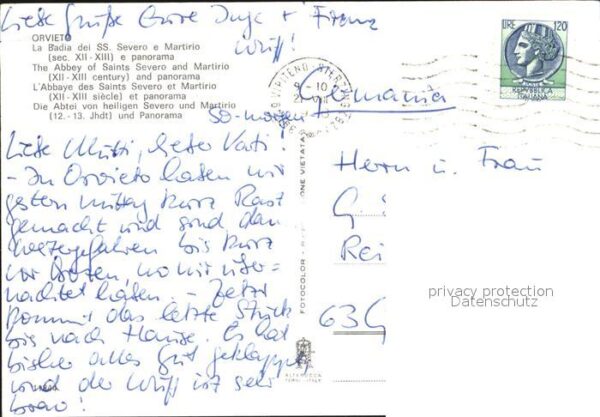 Liebe Grüße Eure Inge + Franz
Wuff!
ORVIETO
La Badia dei SS. Severo e Martirio
(sec. XII - XIII) e panorama
The Abbey of Saints Severo and Martirio
(XII - XIII century) and panorama
L'Abbaye des Saints Severo et Martirio
(XII - XIII siècle) et panorama
Die Abtei von heiligen Severo und Martirio
(12. - 13. Jhdt) und Panorama
LIRE 120
REPVBBLICA
ITALIANA
9 - 10
Germania
So-morgen
Liebe Mutti, lieber Vati!
- In Orvieto haben wir
gestern mittag kurz Rast
gemacht und sind dann
weitergefahren bis kurz
vor Bozen, wo wir über-
nachtet haben. - Jetzt
kommt das letzte Stück
bis nach Hause. Es hat
bisher alles gut geklappt
und der Wuff ist sehr
brav!
Herrn u. Frau
G
Rei
63G
FOTOCOLOR
ONE VIETATA
privacy protection
Datenschutz
ALTEROCCA
TERNI